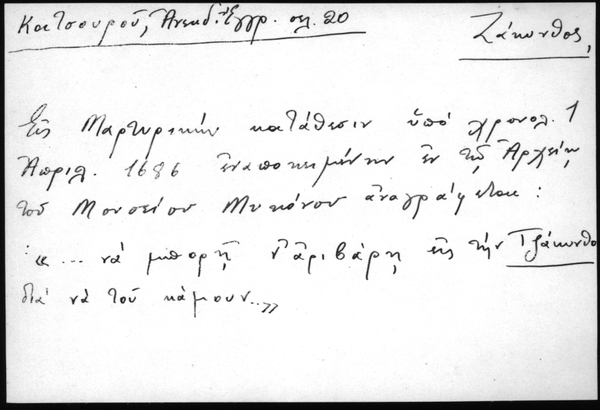 Κατσουροῦ, Ἀνεκδ. Ἔγγρ. σελ. 20
Ζάκυνθος,
Εἰς Μαρτυρικὴν κατάθεσιν ὑπὸ χρονολ. 1
Ἀπριλ. 1686 ἐναποκειμένην ἐν τῷ Ἀρχείῳ
τοῦ Μουσείου Μυκόνου ἀναγράφεται:
«... νὰ μπορῇ ν' ἀριβάρῃ εἰς τὴν Τζάκυνθο
διὰ νὰ τοῦ κάμουν...»